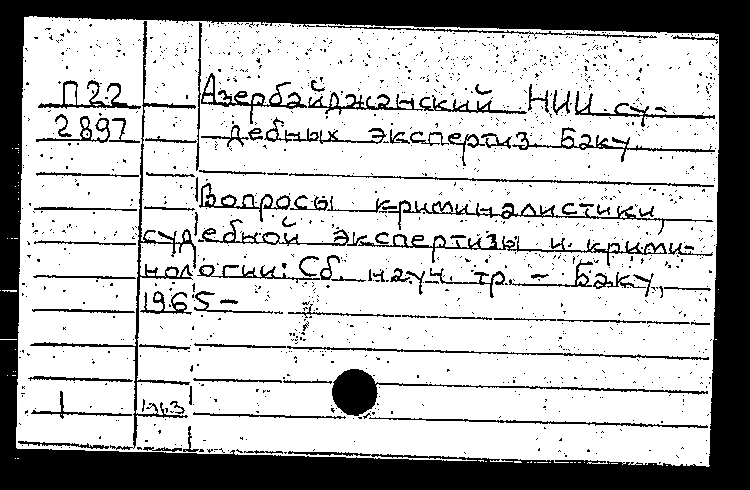 П22 Азербайджанский НИИ су-
2897 дебных экспертиз. Баку
Вопросы криминалистики,
судебной экспертизы и крими-
нологии: Сб. науч. тр. – Баку,
1965 –
1